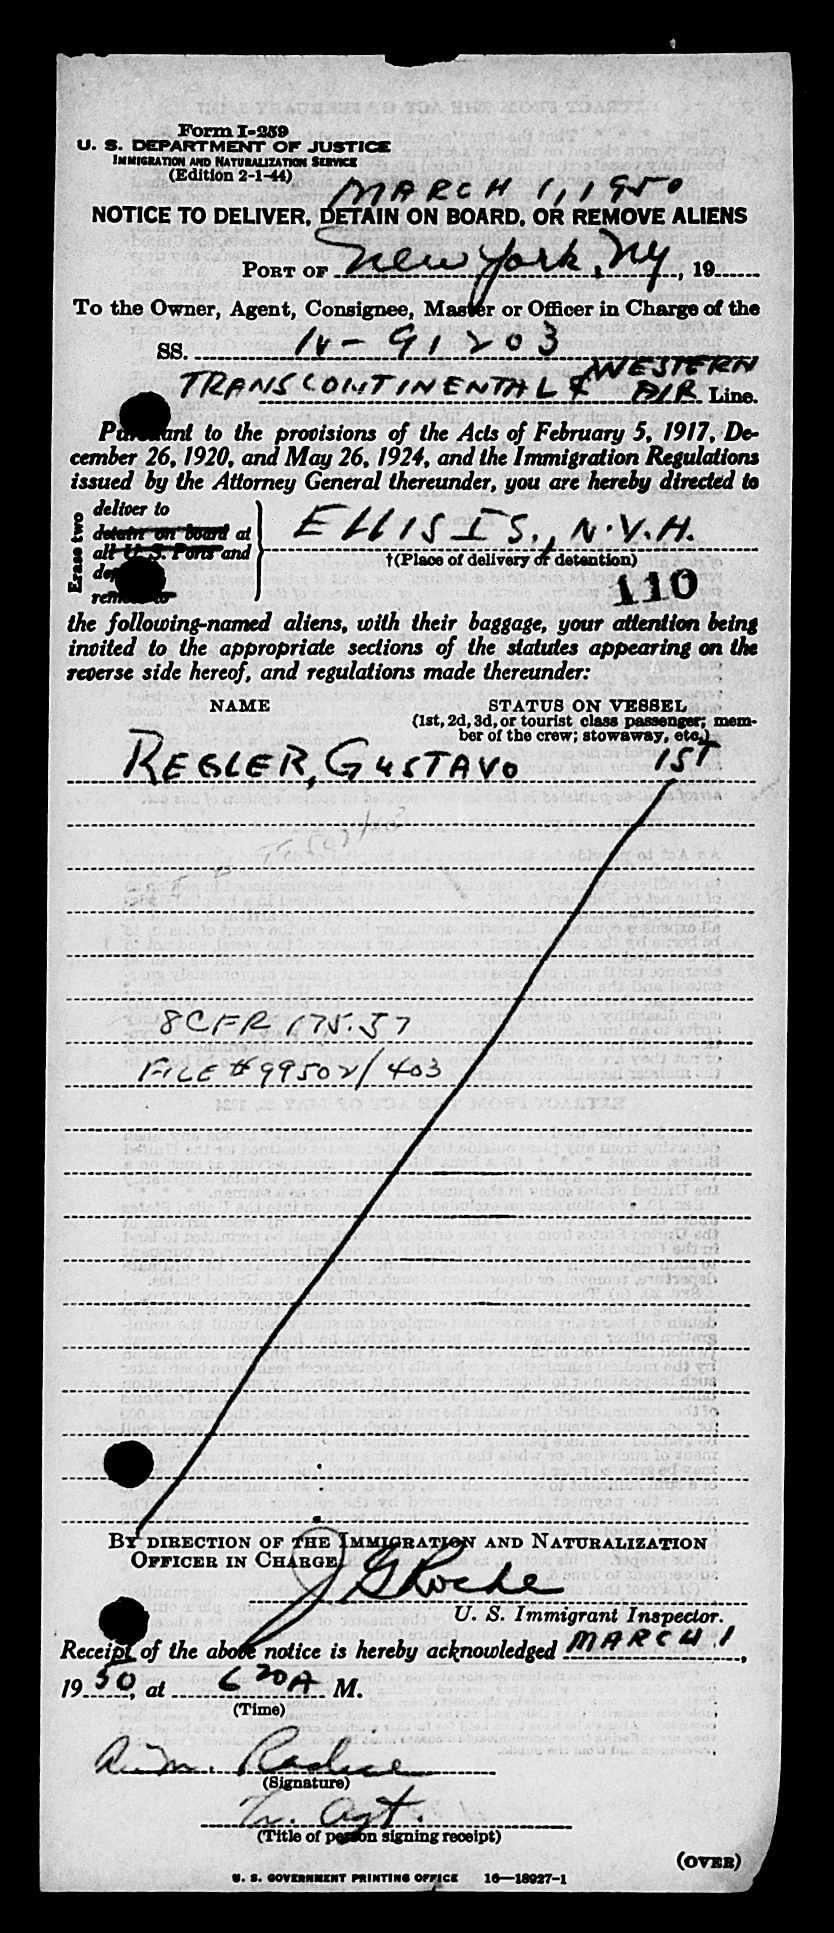 Form I-259
U. S. DEPARTMENT OF JUSTICE
IMMIGRATION AND NATURALIZATION SERVICE
(Edition 2-1-44)
MARCH 1, 1950
NOTICE TO DELIVER, DETAIN ON BOARD, OR REMOVE ALIENS
PORT OF New York, NY, 19
To the Owner, Agent, Consignee, Master or Officer in Charge of the
SS. N-91203
TRANSCONTINENTAL & WESTERN AIR Line.
Pursuant to the provisions of the Acts of February 5, 1917, De-
cember 26, 1920, and May 26, 1924, and the Immigration Regulations
issued by the Attorney General thereunder, you are hereby directed to
Erase two
deliver to
detain on board at
all U. S. Ports and
remove to
ELLIS IS., N.Y.H.
†(Place of delivery or detention)
110
the following-named aliens, with their baggage, your attention being
invited to the appropriate sections of the statutes appearing on the
reverse side hereof, and regulations made thereunder:
NAME
STATUS ON VESSEL
(1st, 2d, 3d, or tourist class passenger; mem-
ber of the crew; stowaway, etc.)
REGLER, GUSTAVO 1ST
8 CFR 175.57
FILE # 99502/403
BY DIRECTION OF THE IMMIGRATION AND NATURALIZATION
OFFICER IN CHARGE.
J G Roche
U. S. Immigrant Inspector.
Receipt of the above notice is hereby acknowledged MARCH 1,
1950, at 620 A M.
(Time)
(Signature)
Agt.
(Title of person signing receipt)
(OVER)
U. S. GOVERNMENT PRINTING OFFICE 16—18927-1